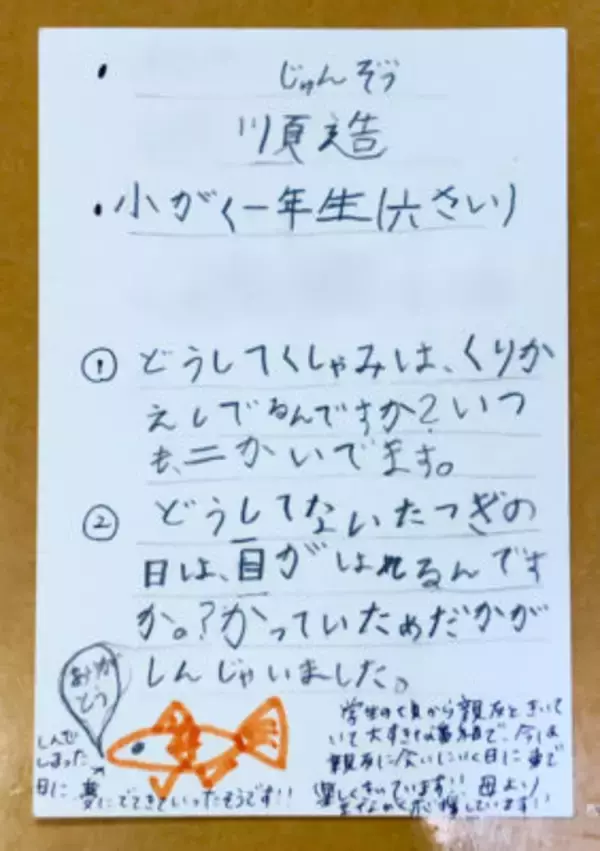 じゅんぞう
順造
小がく一年生(六さい)
① どうしてくしゃみは、くりか
えしでるんですか?いつ
も、二かいでます。
② どうしてないたつぎの
日は、目がはれるんです
か。?かっていためだかが
しんじゃいました。
ありが
とう
しんで
しまった
日に 夢にでてきていったそうです!!
学生の頃から親友ときいて
いて大すきな番組で、今は
親友に会いにいく日に車で
楽しくきいています!! 母より